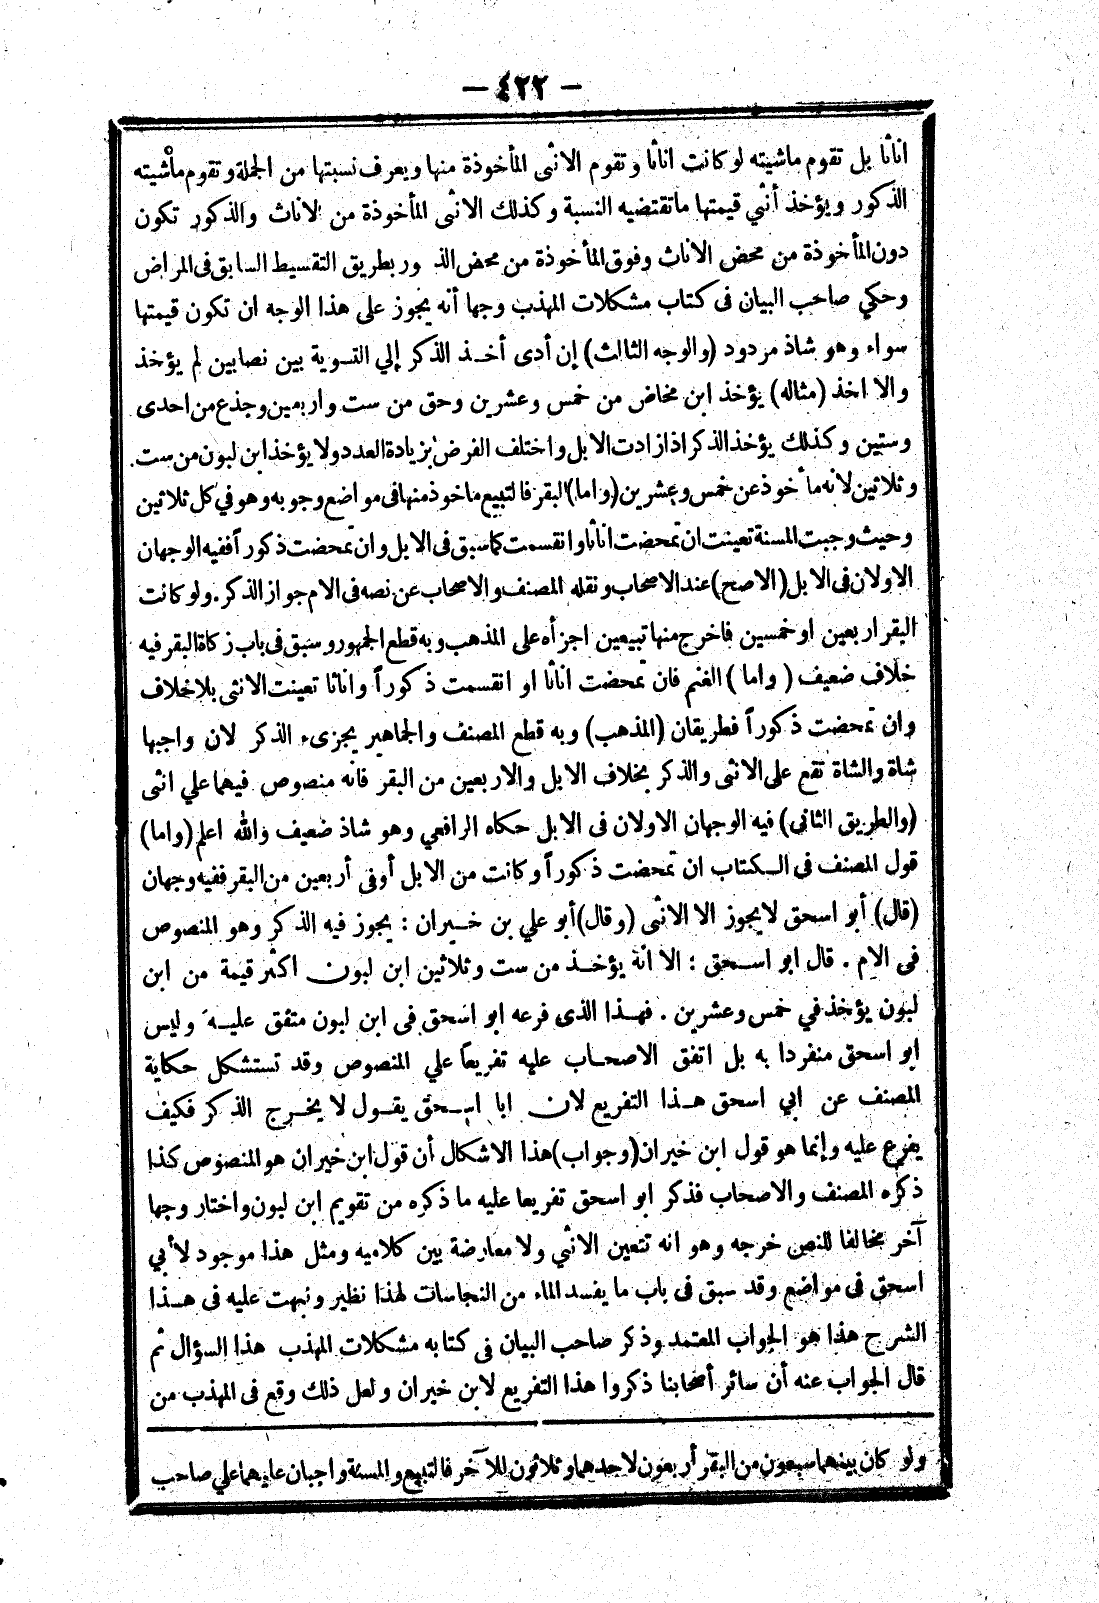 — ٤٢٢ —
اناثا بل تقوم ماشيته لو كانت اناثا وتقوم الانثى المأخوذة منها ويعرف نسبتها من الجملة وتقوم ماشيته
الذكور ويؤخذ أنثي قيمتها ماتقتضيه النسبة وكذلك الانثى المأخوذة من الاناث والذكور تكون
دون المأخوذة من محض الاناث وفوق المأخوذة من محض الذ ور بطريق التقسيط السابق فى المراض
وحكي صاحب البيان فى كتاب مشكلات المهذب وجها أنه يجوز على هذا الوجه ان تكون قيمتها
سواء وهو شاذ مردود (والوجه الثالث) إن أدى أخـذ الذكر إلي التسوية بين نصابين لم يؤخذ
والا اخذ (مثاله) يؤخذ ابن مخاض من خمس وعشرين وحق من ست واربعين وجذع من احدى
وستين وكذلك يؤخذ الذكر اذا زادت الابل واختلف الفرض بزيادة العدد ولا يؤخذ ابن لبون من ست
وثلاثين لانه مأخوذ عن خمس وعشرين (واما) البقر فالتبيع ماخوذ منها فى مواضع وجوبه وهو في كل ثلاثين
وحيث وجبت المسنة تعينت ان تمحضت اناثا وانقسمت كما سبق فى الابل وان تمحضت ذكوراً ففيه الوجهان
الاولان فى الابل (الاصح) عند الاصحاب ونقله المصنف والاصحاب عن نصه فى الام جواز الذكر . ولو كانت
البقر اربعين او خمسين فاخرج منها تبيعين اجزأه على المذهب وبه قطع الجمهور وسبق فى باب زكاة البقر فيه
خلاف ضعيف (واما) الغنم فان تمحضت اناثا او انقسمت ذكوراً واناثا تعينت الانثى بلا خلاف
وان تمحضت ذكوراً فطريقان (المذهب) وبه قطع المصنف والجماهير يجزىء الذكر لان واجبها
شاة والشاة تقع على الانثى والذكر بخلاف الابل والاربعين من البقر فانه منصوص فيهما علي انثى
(والطريق الثانى) فيه الوجهان الاولان فى الابل حكاه الرافعي وهو شاذ ضعيف والله اعلم (واما)
قول المصنف فى الـكتاب ان تمحضت ذكوراً وكانت من الابل أو فى أربعين من البقر ففيه وجهان
(قال) أبو اسحق لا يجوز الا الانثى (وقال) أبو علي بن خـيران : يجوز فيه الذكر وهو المنصوص
فى الام . قال ابو اسـحق : الا انه يؤخـذ من ست وثلاثين ابن لبون اكثر قيمة من ابن
لبون يؤخذ في خمس وعشرين . فهـذا الذى فرعه ابو اسحق فى ابن لبون متفق عليـه وليس
ابو اسحق منفردا به بل اتفق الاصحـاب عليه تفريعاً علي المنصوص وقد تستشكل حكاية
المصنف عن ابي اسحق هـذا التفريع لان ابا اسـحق يقـول لا يخـرج الذكر فكيف
يفرع عليه وإنما هو قول ابن خيران (وجواب) هذا الاشكال أن قول ابن خيران هو المنصوص كذا
ذكره المصنف والاصحاب فذكر ابو اسحق تفريعا عليه ما ذكره من تقويم ابن لبون واختار وجها
آخر مخالفا للنص خرجه وهو انه تتعين الانثي ولا معارضة بين كلاميه ومثل هذا موجود لأبي
اسحق فى مواضع وقد سبق فى باب ما يفسد الماء من النجاسات لهذا نظير ونبهت عليه فى هـذا
الشرح هذا هو الجواب المعتمد وذكر صاحب البيان فى كتابه مشكلات المهذب هذا السؤال ثم
قال الجواب عنه أن سائر أصحابنا ذكروا هذا التفريع لابن خيران ولعل ذلك وقع فى المهذب من
ولو كان بينهما سبعون من البقر أربعون لاحدهما وثلاثون للآخر فالتبيع والمسنة واجبان عليهما علي صاحب